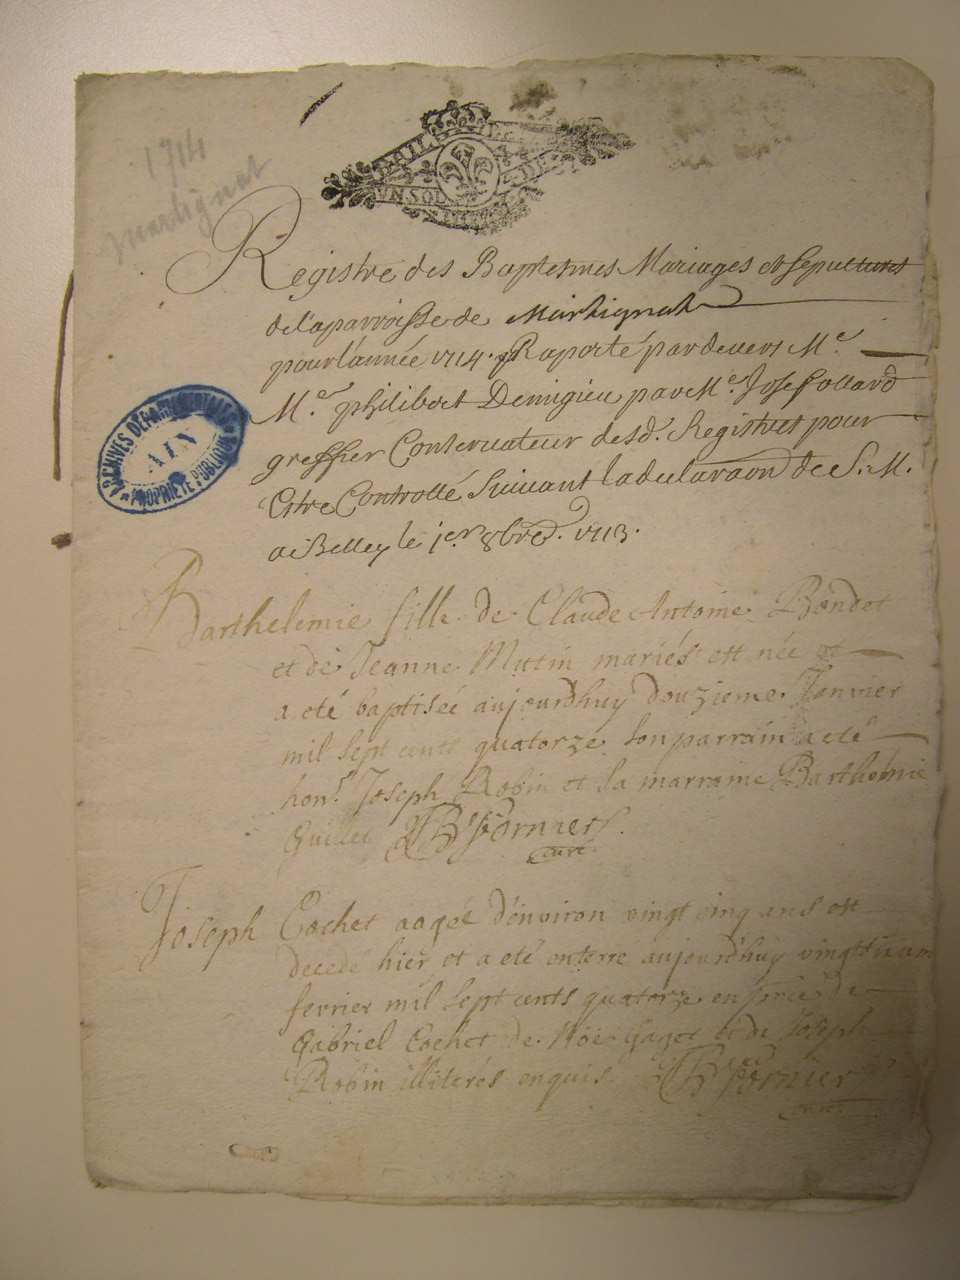 1714
Martignat
UN SOL
Registre des Baptesmes Mariages et sepultures
de la parroisse de Martignat
pour l'année 1714. Raporté pardevers Me.
Me. philibert Demigieu par Me. Joseph ollard
greffier Conservateur desd. Registres pour
Estre Controllé suivant la declaraon de S. M.
a Belley le jer. 8bre. 1713.
ARCHIVES DÉPARTEMENTALES
AIN
PROPRIÉTÉ PUBLIQUE
Barthelemie fille de Claude Antoine Bondet
et de Jeanne Mutin mariés est née et
a eté baptisée aujourdhuy douzieme Janvier
mil sept cents quatorze son parrain a eté
hon. Joseph Robin et sa marraine Barthelmie
Guillet Fornier
curé
Joseph Cochet aagé d'environ vingt cinq ans est
decedé hier et a eté enterré aujourd'huy
fevrier mil sept cents quatorze en
Gabriel Cochet de et de Joseph
Robin illiterés enquis. Fornier
curé